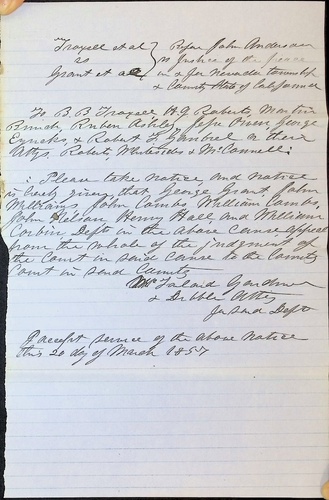 Troxell et al } Before John Anderson
vs } a Justice of the peace
Grant et al } in & for Nevada township
& County State of California
To B. B. Troxell H. G. Roberts, Martin
Ruben Ashley, John Pinn George
& Robert F. Gambrel or their
Attys, Roberts, Whitesides & McConnell:
Please take notice and notice
is hereby given that George Grant, John
Williams, John Combs, William Combs,
John Wilson, Henry Hall and William
Corbin Defts in the above cause appeal
from the whole of the judgment of
the Court in said cause to the County
Court in said County
McFarland Gardner
& Dibble Attys
for said Defts
I accept service of the above notice
this 20 day of March 1857